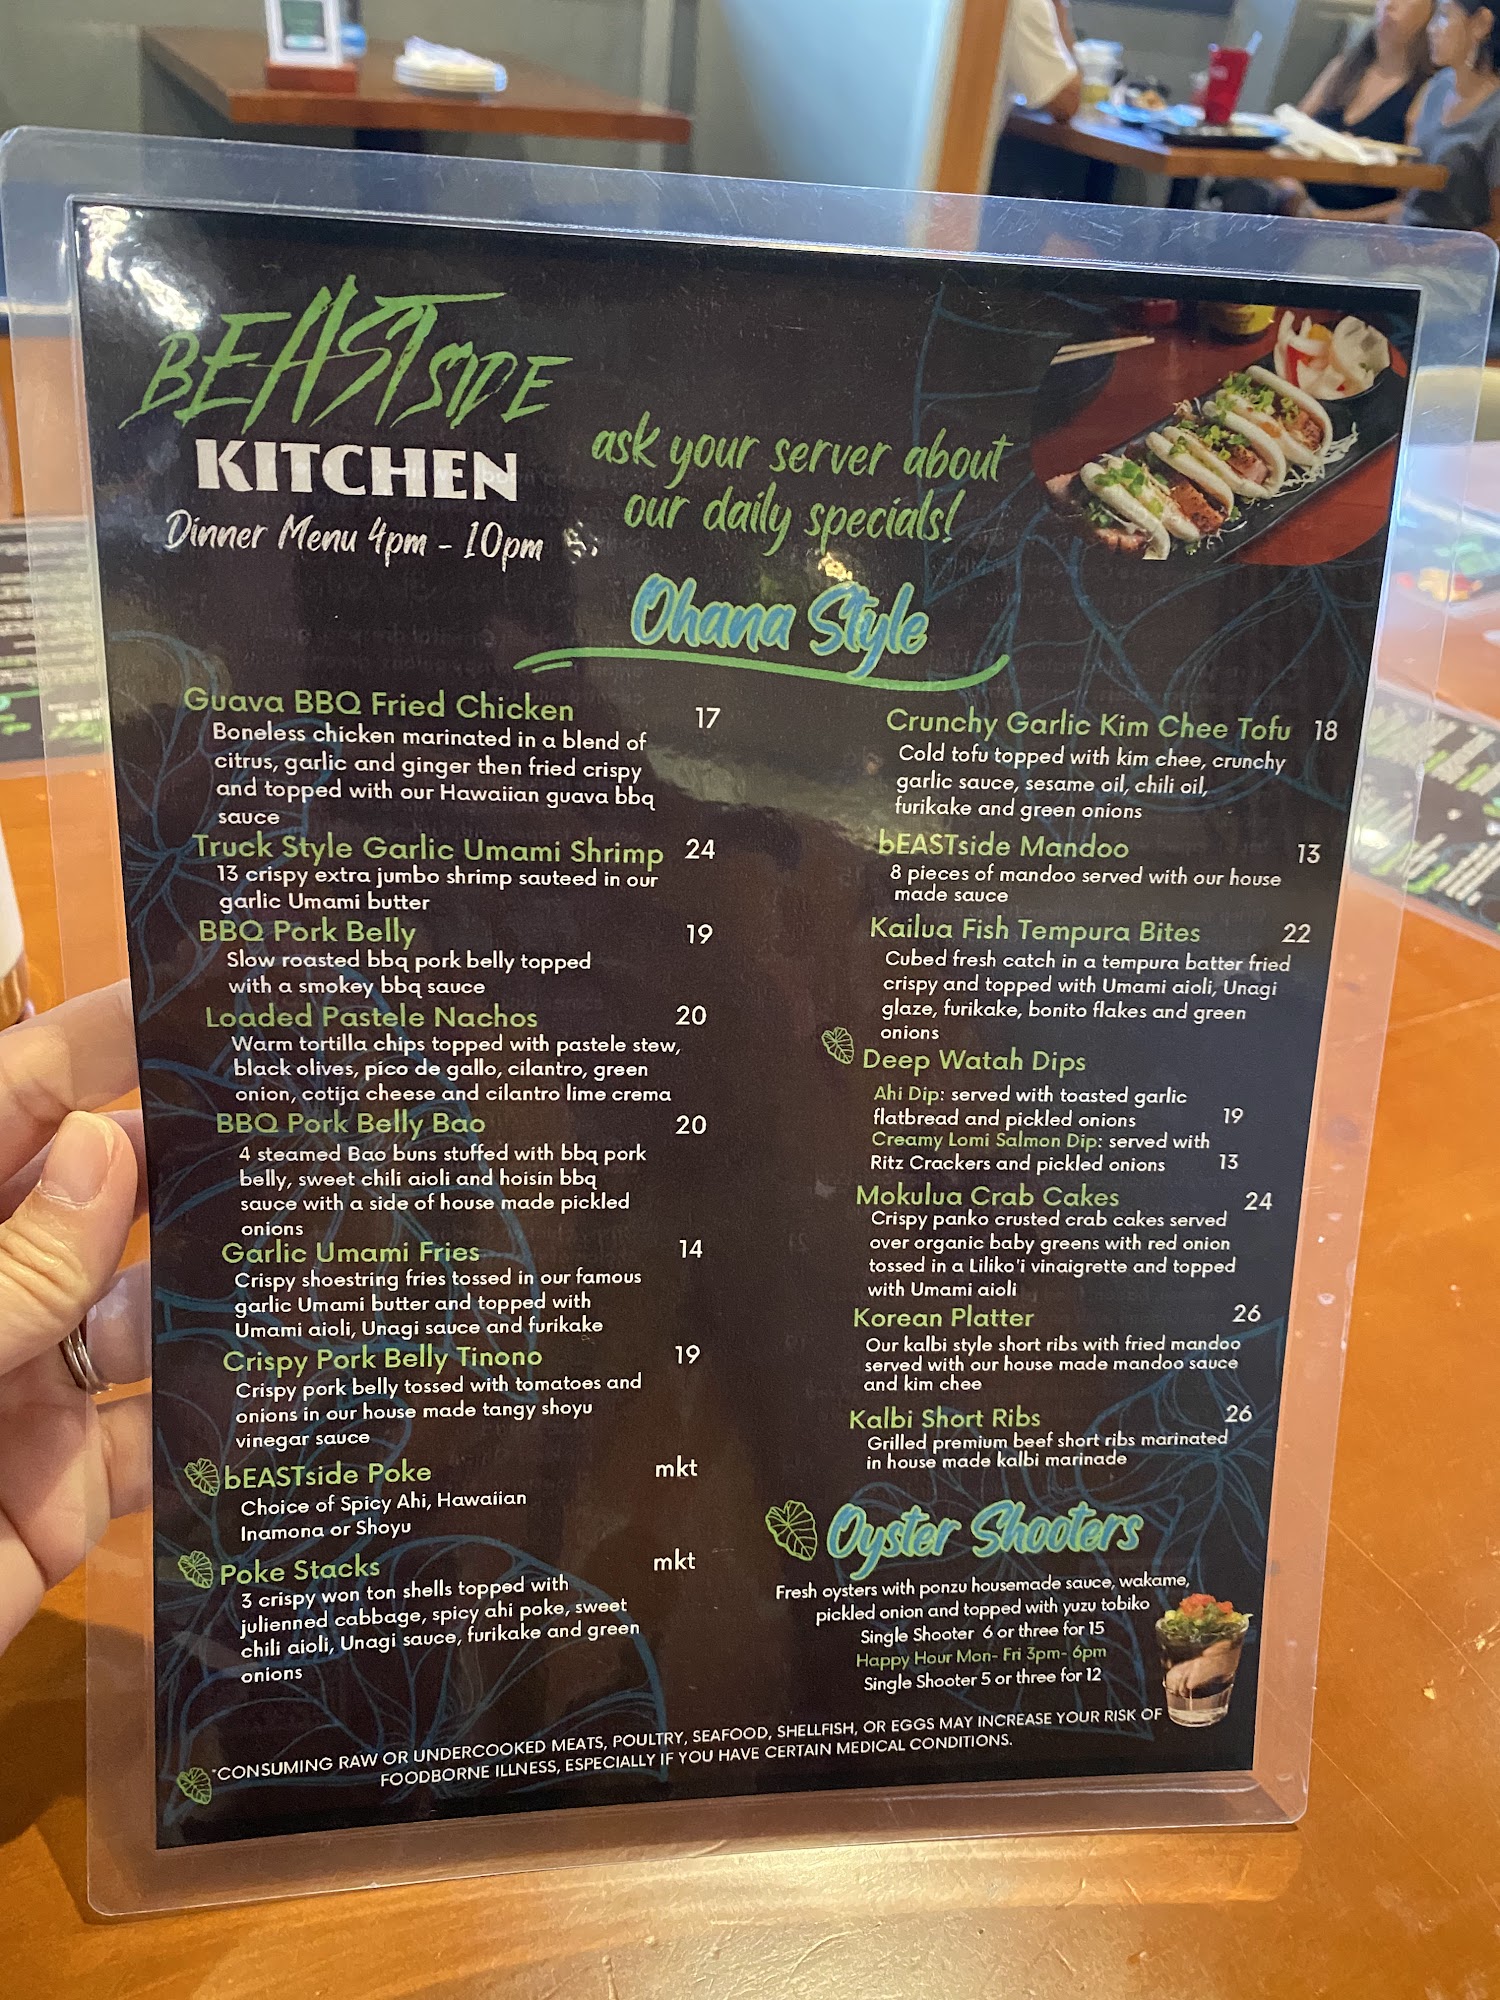 bEASTSIDE
KITCHEN
Dinner Menu 4pm - 10pm
ask your server about
our daily specials!
Ohana Style
Guava BBQ Fried Chicken 17
Boneless chicken marinated in a blend of
citrus, garlic and ginger then fried crispy
and topped with our Hawaiian guava bbq
sauce
Truck Style Garlic Umami Shrimp 24
13 crispy extra jumbo shrimp sauteed in our
garlic Umami butter
BBQ Pork Belly 19
Slow roasted bbq pork belly topped
with a smokey bbq sauce
Loaded Pastele Nachos 20
Warm tortilla chips topped with pastele stew,
black olives, pico de gallo, cilantro, green
onion, cotija cheese and cilantro lime crema
BBQ Pork Belly Bao 20
4 steamed Bao buns stuffed with bbq pork
belly, sweet chili aioli and hoisin bbq
sauce with a side of house made pickled
onions
Garlic Umami Fries 14
Crispy shoestring fries tossed in our famous
garlic Umami butter and topped with
Umami aioli, Unagi sauce and furikake
Crispy Pork Belly Tinono 19
Crispy pork belly tossed with tomatoes and
onions in our house made tangy shoyu
vinegar sauce
bEASTside Poke mkt
Choice of Spicy Ahi, Hawaiian
Inamona or Shoyu
Poke Stacks mkt
3 crispy won ton shells topped with
julienned cabbage, spicy ahi poke, sweet
chili aioli, Unagi sauce, furikake and green
onions
Crunchy Garlic Kim Chee Tofu 18
Cold tofu topped with kim chee, crunchy
garlic sauce, sesame oil, chili oil,
furikake and green onions
bEASTside Mandoo 13
8 pieces of mandoo served with our house
made sauce
Kailua Fish Tempura Bites 22
Cubed fresh catch in a tempura batter fried
crispy and topped with Umami aioli, Unagi
glaze, furikake, bonito flakes and green
onions
Deep Watah Dips
Ahi Dip: served with toasted garlic
flatbread and pickled onions 19
Creamy Lomi Salmon Dip: served with
Ritz Crackers and pickled onions 13
Mokulua Crab Cakes 24
Crispy panko crusted crab cakes served
over organic baby greens with red onion
tossed in a Liliko'i vinaigrette and topped
with Umami aioli
Korean Platter 26
Our kalbi style short ribs with fried mandoo
served with our house made mandoo sauce
and kim chee
Kalbi Short Ribs 26
Grilled premium beef short ribs marinated
in house made kalbi marinade
Oyster Shooters
Fresh oysters with ponzu housemade sauce, wakame,
pickled onion and topped with yuzu tobiko
Single Shooter 6 or three for 15
Happy Hour Mon- Fri 3pm- 6pm
Single Shooter 5 or three for 12
*CONSUMING RAW OR UNDERCOOKED MEATS, POULTRY, SEAFOOD, SHELLFISH, OR EGGS MAY INCREASE YOUR RISK OF
FOODBORNE ILLNESS, ESPECIALLY IF YOU HAVE CERTAIN MEDICAL CONDITIONS.